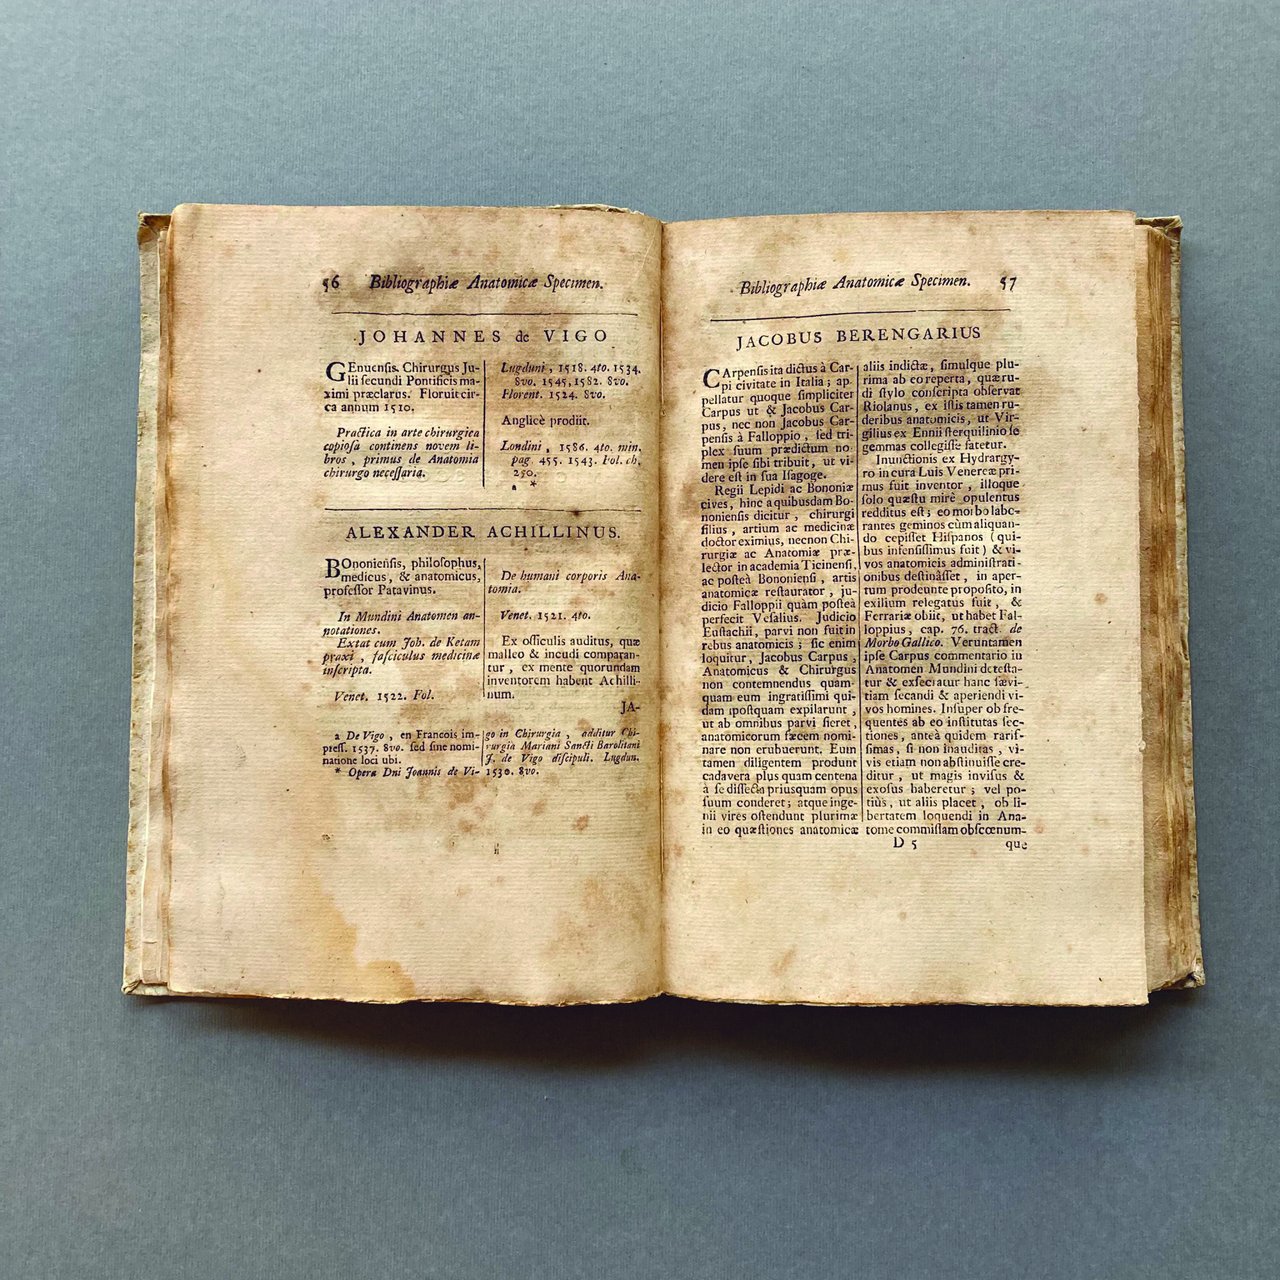 56 Bibliographiæ Anatomicæ Specimen.
JOHANNES de VIGO
GEnuensis. Chirurgus Ju-
lii secundi Pontificis ma-
ximi præclarus. Floruit cir-
ca annum 1510.
Practica in arte chirurgica
copiosa continens novem li-
bros, primus de Anatomia
chirurgo necessaria.
Lugduni, 1518. 4to. 1534.
8vo. 1545, 1582. 8vo.
Florent. 1524. 8vo.
Anglicè prodiit.
Londini, 1586. 4to. min.
pag. 455. 1543. Fol. ch.
250.
a *
ALEXANDER ACHILLINUS.
BOnoniensis, philosophus,
medicus, & anatomicus,
professor Patavinus.
In Mundini Anatomen an-
notationes.
Extat cum Joh. de Ketam
praxi, fasciculus medicinæ
inscripta.
Venet. 1522. Fol.
De humani corporis Ana-
tomia.
Venet. 1521. 4to.
Ex officulis auditus, quæ
malleo & incudi comparan-
tur, ex mente quorundam
inventorem habent Achilli-
num.
JA-
a De Vigo, en Francois im-
press. 1537. 8vo. sed sine nomi-
natione loci ubi.
* Opera Dni Joannis de Vi-
go in Chirurgia, additur Chi-
rurgia Mariani Sancti Barolitani
J. de Vigo discipuli. Lugdun.
1530. 8vo.
Bibliographiæ Anatomicæ Specimen. 57
JACOBUS BERENGARIUS
CArpensis ita dictus à Car-
pi civitate in Italia; ap-
pellatur quoque simpliciter
Carpus ut & Jacobus Car-
pus, nec non Jacobus Car-
pensis à Falloppio, sed tri-
plex suum prædictum no-
men ipse sibi tribuit, ut vi-
dere est in sua Isagoge.
Regii Lepidi ac Bononiæ
cives, hinc a quibusdam Bo-
noniensis dicitur, chirurgi
filius, artium ac medicinæ
doctor eximius, necnon Chi-
rurgiæ ac Anatomiæ præ-
lector in academia Ticinensi,
ac posteà Bononiensi, artis
anatomicæ restaurator, ju-
dicio Falloppii quàm posteà
perfecit Vesalius. Judicio
Eustachii, parvi non fuit in
rebus anatomicis; sic enim
loquitur, Jacobus Carpus,
Anatomicus & Chirurgus
non contemnendus quam-
quam eum ingratissimi qui-
dam ipostquam expilarunt,
ut ab omnibus parvi fieret,
anatomicorum fæcem nomi-
nare non erubuerunt. Eum
tamen diligentem produnt
cadavera plus quam centena
à se dissecta priusquam opus
suum conderet; atque inge-
nii vires ostendunt plurimæ
in eo quæstiones anatomicæ
aliis indictæ, simulque plu-
rima ab eo reperta, quæ ru-
di stylo conscripta observat
Riolanus, ex istis tamen ru-
deribus anatomicis, ut Vir-
gilius ex Ennii sterquilinio se
gemmas collegisse fatetur.
Inunctionis ex Hydrargy-
ro in cura Luis Venereæ pri-
mus fuit inventor, illoque
solo quæstu mirè opulentus
redditus est; eo morbo labo-
rantes geminos cùm aliquan-
do cepisset Hispanos (qui-
bus infensissimus fuit) & vi-
vos anatomicis administrati-
onibus destinâsset, in aper-
tum prodeunte proposito, in
exilium relegatus fuit, &
Ferrariæ obiit, ut habet Fal-
loppius, cap. 76. tract. de
Morbo Gallico. Veruntamen
ipse Carpus commentario in
Anatomen Mundini detesta-
tur & exsecratur hanc sævi-
tiam secandi & aperiendi vi-
vos homines. Insuper ob fre-
quentes ab eo institutas sec-
tiones, anteà quidem raris-
simas, si non inauditas, vi-
vis etiam non abstinuisse cre-
ditur, ut magis invisus &
exosus haberetur; vel po-
tiùs, ut aliis placet, ob li-
bertatem loquendi in Ana-
tome commissam obscœnum-
D 5 que